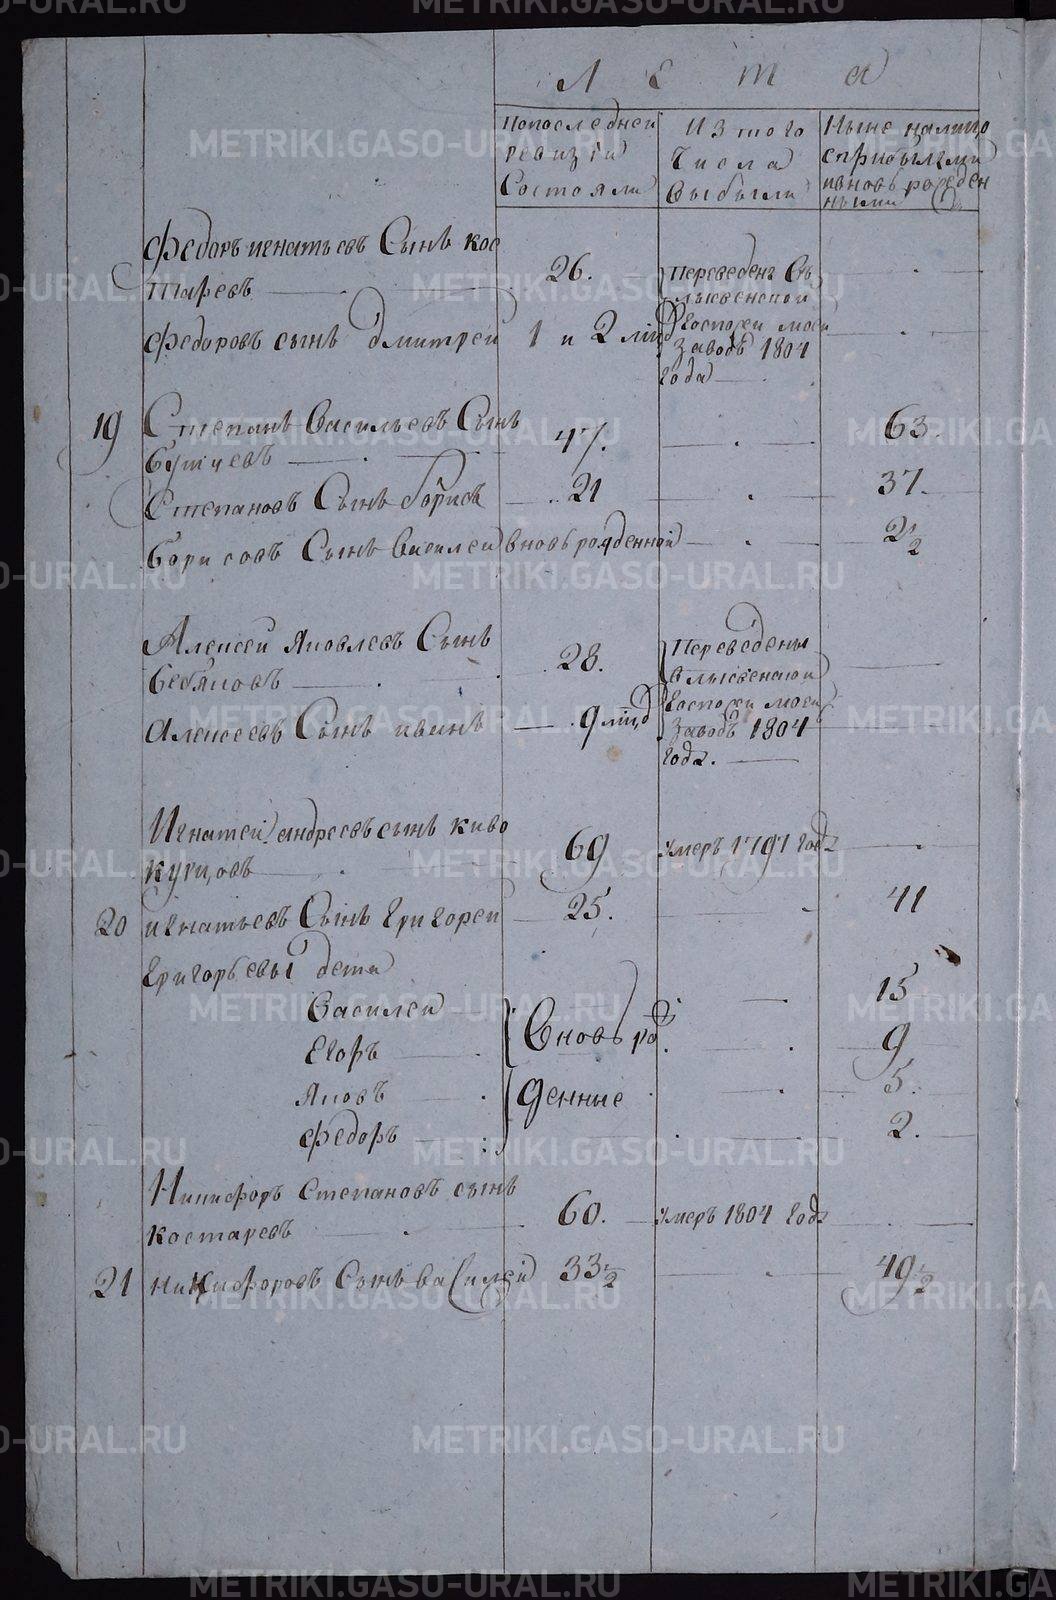 Л е т а
Попоследней
ревизiи
Состояли
Из того
Числа
Выбыли
Ныне налицо
сприбылыми
ивновь рожден
ными
Федоръ игнатьевъ Сынъ кос
таревъ 26.
Переведенъ Въ
лысвенской
Госпожи моей
Заводъ 1804
Года
федоровъ сынъ Дмитрей 1 и 2 мцъ
19 Степанъ Васильевъ Сынъ 47. 63.
Степановъ Сынъ борисъ 21 37.
борисовъ Сынъ Василей вновьрожденной 2 1/2
Алексей Яковлевъ Сынъ
28.
Переведены
Влысвенской
Госпожи моей
Заводъ 1804
Года.
Алексеевъ Сынъ иванъ 9 мцъ
Игнатей андреевъ сынъ киво
куцовъ 69 умеръ 1797 Года
20 игнатьевъ Сынъ Григорей 25. 41
Григорьевы дети
Василей 15
Егоръ Вновь ро 9
Яковъ жденные 5.
федоръ 2.
Никифоръ Степановъ сынъ
костаревъ 60. умеръ 1804 Года
21 никифоровъ Сынъ василей 33 1/2 49 1/2
METRIKI.GASO-URAL.RU